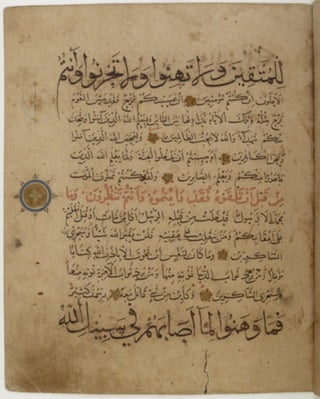 للمتقين ولا تهنوا ولا تحزنوا وانتم
الاعلون ان كنتم مؤمنين ان يمسسكم قرح فقد مس القوم
قرح مثله وتلك الايام نداولها بين الناس وليعلم الله الذين امنوا ويتخذ
منكم شهدآء والله لا يحب الظالمين وليمحص الله الذين امنوا
ويمحق الكافرين ام حسبتم ان تدخلوا الجنة ولما يعلم الله الذين
جاهدوا منكم ويعلم الصابرين ولقد كنتم تمنون الموت
من قبل ان تلقوه فقد رايتموه وانتم تنظرون وما
محمد الا رسول قد خلت من قبله الرسل افان مات او قتل انقلبتم
على اعقابكم ومن ينقلب على عقبيه فلن يضر الله شيئا وسيجزي
الله الشاكرين وما كان لنفس ان تموت الا باذن الله كتابا
مؤجلا ومن يرد ثواب الدنيا نؤته منها ومن يرد ثواب الاخرة نؤته منها
وسنجزي الشاكرين وكاين من نبي قاتل معه ربيون كثير
فما وهنوا لما اصابهم في سبيل الله